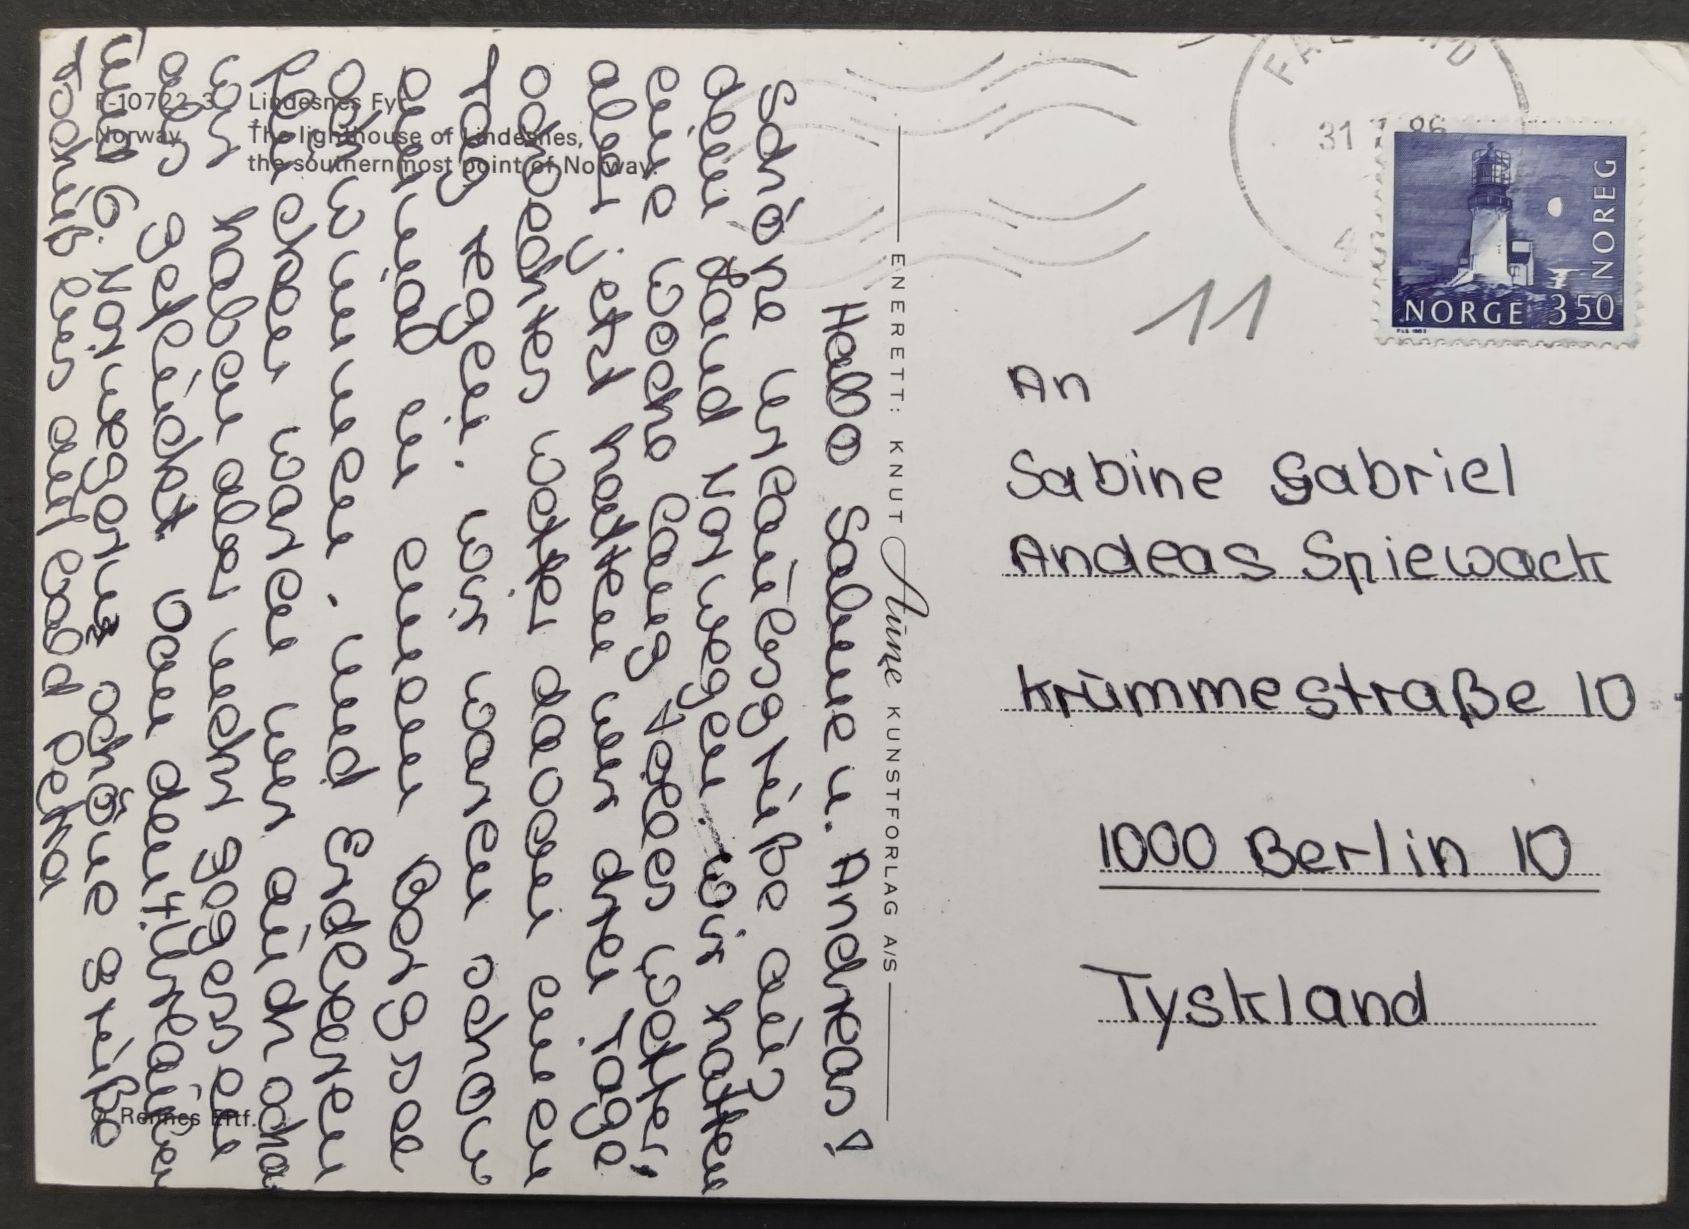 F-10722-3 Lindesnes Fyr
Norway The lighthouse of Lindesnes,
the southernmost point of Norway.
Hallo Sabine u. Andreas!
Schöne Urlaubsgrüße aus
dem Land Norwegen. Wir hatten
eine Woche lang tolles Wetter,
aber jetzt hatten wir drei Tage
schlechtes Wetter davon einen
Tag regen. Wir waren schon
in einem Bergsee
schwimmen. und Erdbeeren
pflücken waren wir auch scho
wir haben aber mehr gegessen
als gepflückt. Von den 4 Urlauber
und 6. Norweger schöne grüße
Tschüß bis auf bald Petra
© Rennes Eftf.
ENERETT: KNUT Aune KUNSTFORLAG A/S
31 86
NORGE 3 50
NOREG
11
An
Sabine Gabriel
Andeas Spiewack
Krümmestraße 10
1000 Berlin 10
Tyskland